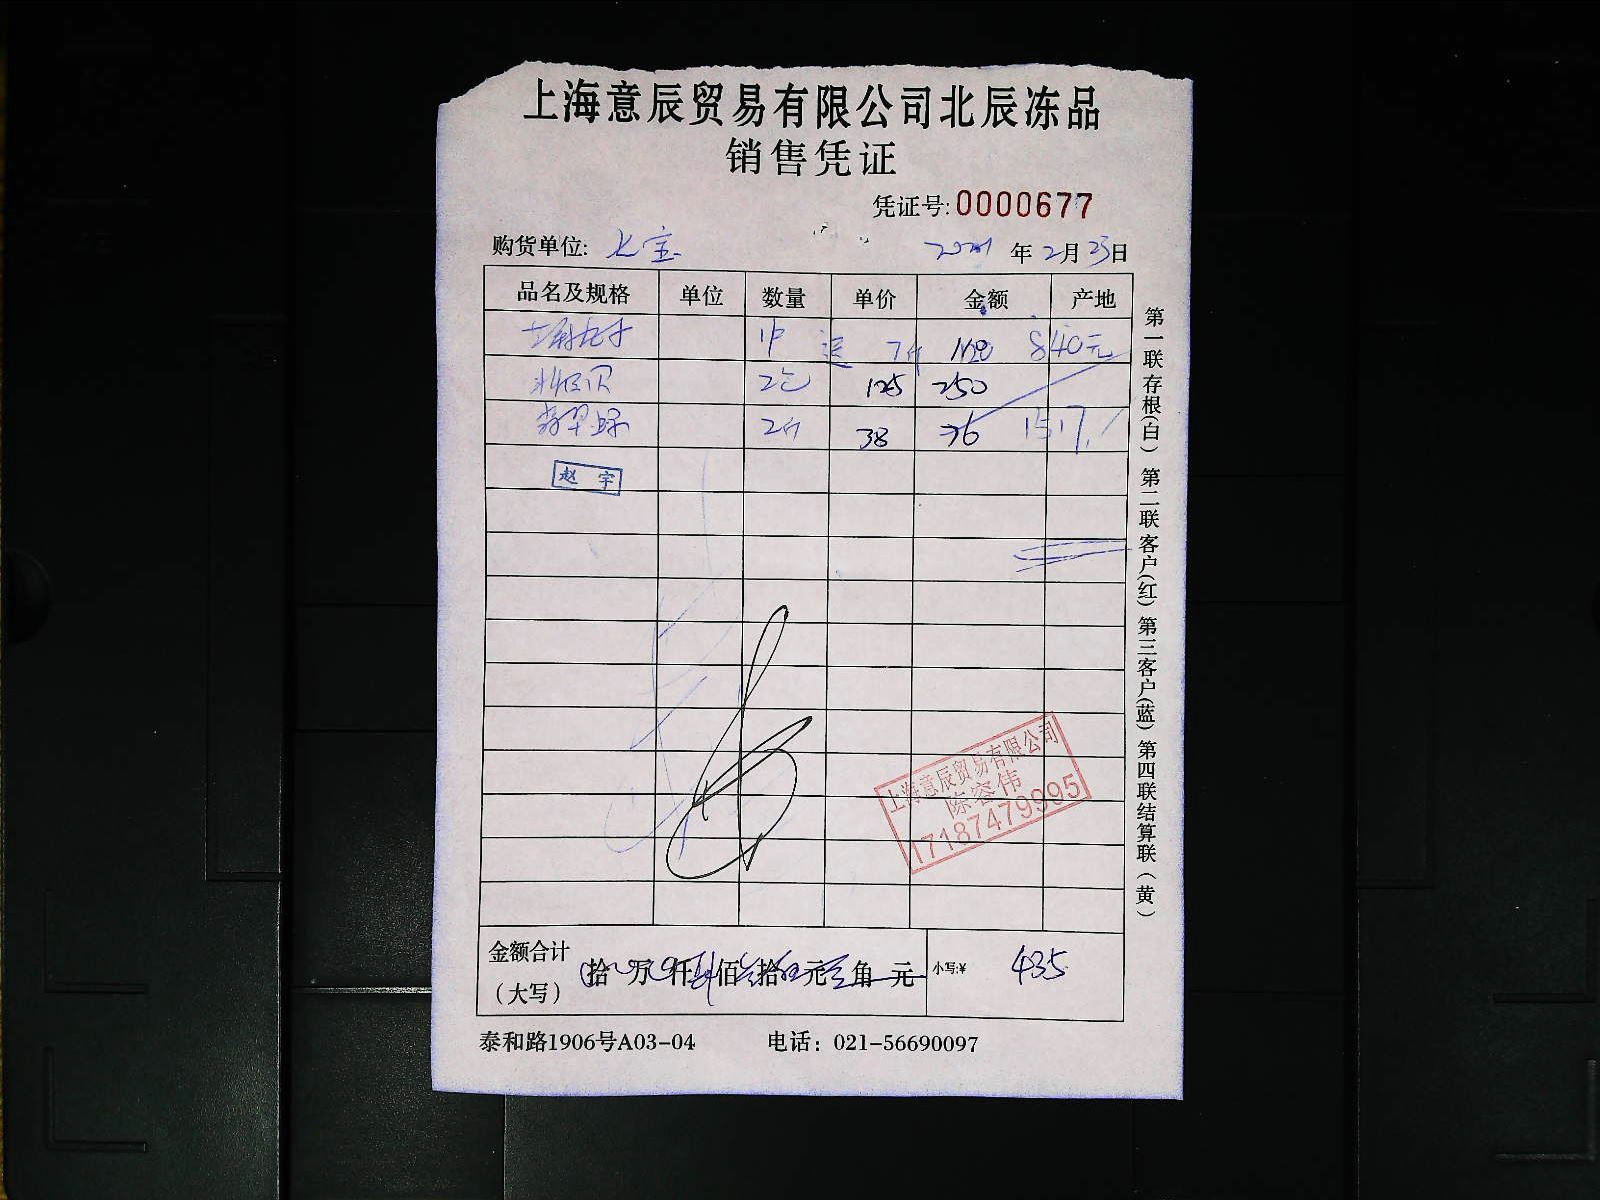 上海意辰贸易有限公司北辰冻品
销售凭证
凭证号:0000677
购货单位: 七宝 2021 年 2月 23日
品名及规格 单位 数量 单价 金额 产地
1 7斤 840元
2包 125 250
翡翠螺 2斤 38 76 1517
赵宇
上海意辰贸易有限公司
陈容伟
17187479995
金额合计
(大写) 拾 万 仟 佰 拾 元 角 元 小写:¥ 435
泰和路1906号A03-04 电话: 021-56690097
第一联存根(白) 第二联客户(红) 第三客户(蓝) 第四联结算联(黄)